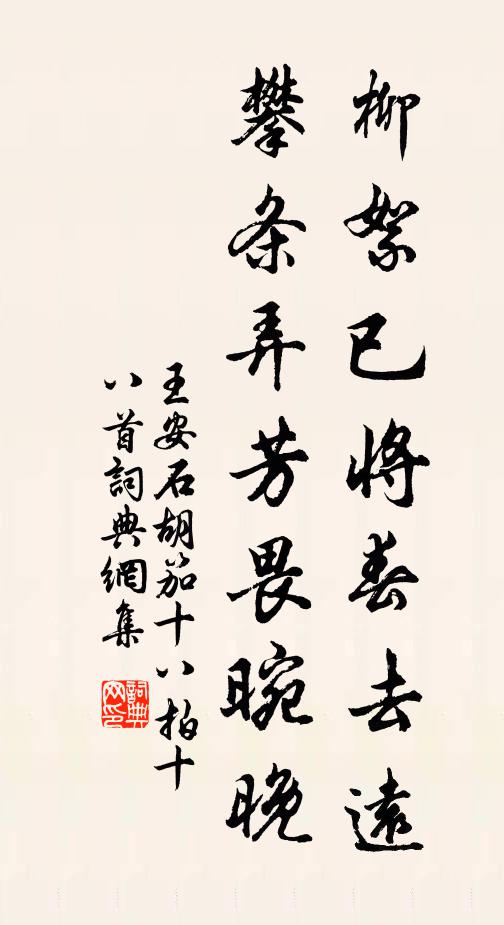 柳絮已將春去遠
攀条弄芳畏晼晚
王安石胡笳十八拍十
八首詞典網集
詞典網印